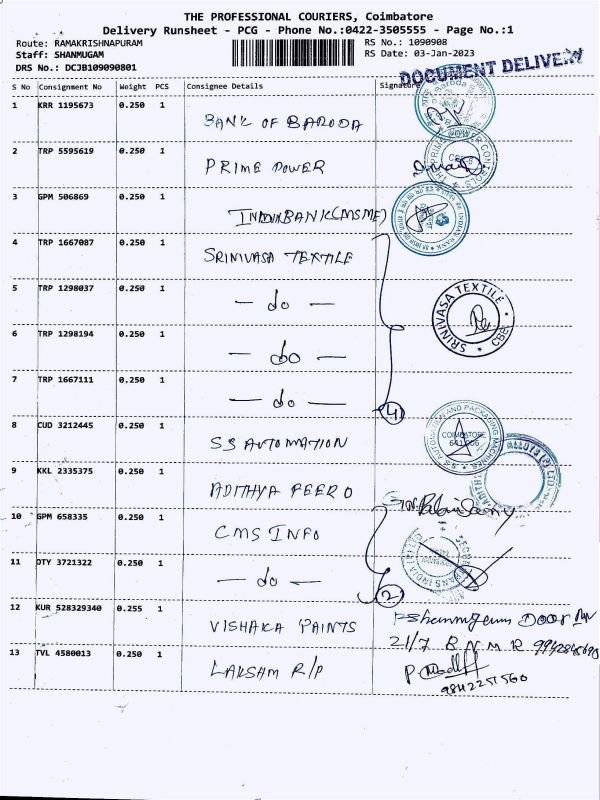 THE PROFESSIONAL COURIERS, Coimbatore
Delivery Runsheet - PCG - Phone No.:0422-3505555 - Page No.:1
Route: RAMAKRISHNAPURAM RS No.: 1090908
Staff: SHANMUGAM RS Date: 03-Jan-2023
DRS No.: DCJB109090801
DOCUMENT DELIVERY
S No Consignment No Weight PCS Consignee Details Signature
1 KRR 1195673 0.250 1 BANK OF BARODA
2 TRP 5595619 0.250 1 PRIME POWER
3 GPM 506869 0.250 1 INDIAN BANK (MSME)
INDIAN BANK
4 TRP 1667087 0.250 1 SRINIVASA TEXTILE
5 TRP 1298037 0.250 1 — do —
SRINIVASA TEXTILE
CBE
6 TRP 1298194 0.250 1 — do —
7 TRP 1667111 0.250 1 — do —
4
8 CUD 3212445 0.250 1 SS AUTOMATION
S.S. AUTOMATION AND PACKAGING MACHINES
COIMBATORE
9 KKL 2335375 0.250 1 ADITHYA FEERO
ALLOYS (P) LTD
10 GPM 658335 0.250 1 CMS INFO
11 DTY 3721322 0.250 1 — do —
2
12 KUR 528329340 0.255 1 VISHAKA PAINTS
21/7 B.N.M.R
13 TVL 4580013 0.250 1 LAKSHM R/P
9842251560